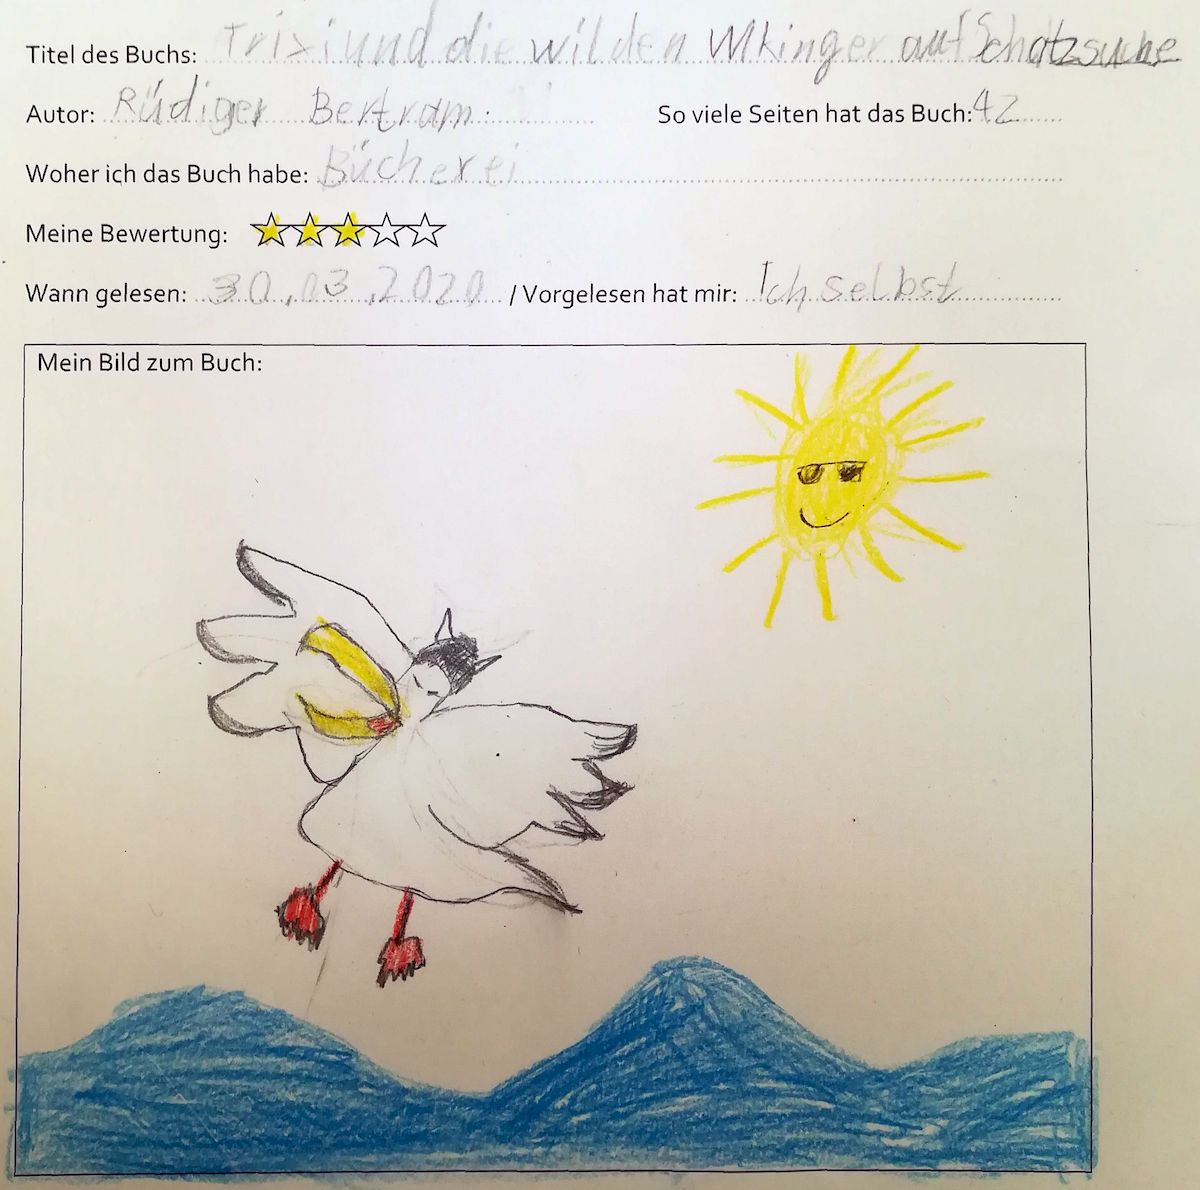 Titel des Buchs: Trixi und die wilden Wikinger auf Schatzsuche
Autor: Rüdiger Bertram. So viele Seiten hat das Buch: 42
Woher ich das Buch habe: Bücherei
Meine Bewertung:
Wann gelesen: 30.03.2020 / Vorgelesen hat mir: Ich selbst
Mein Bild zum Buch: